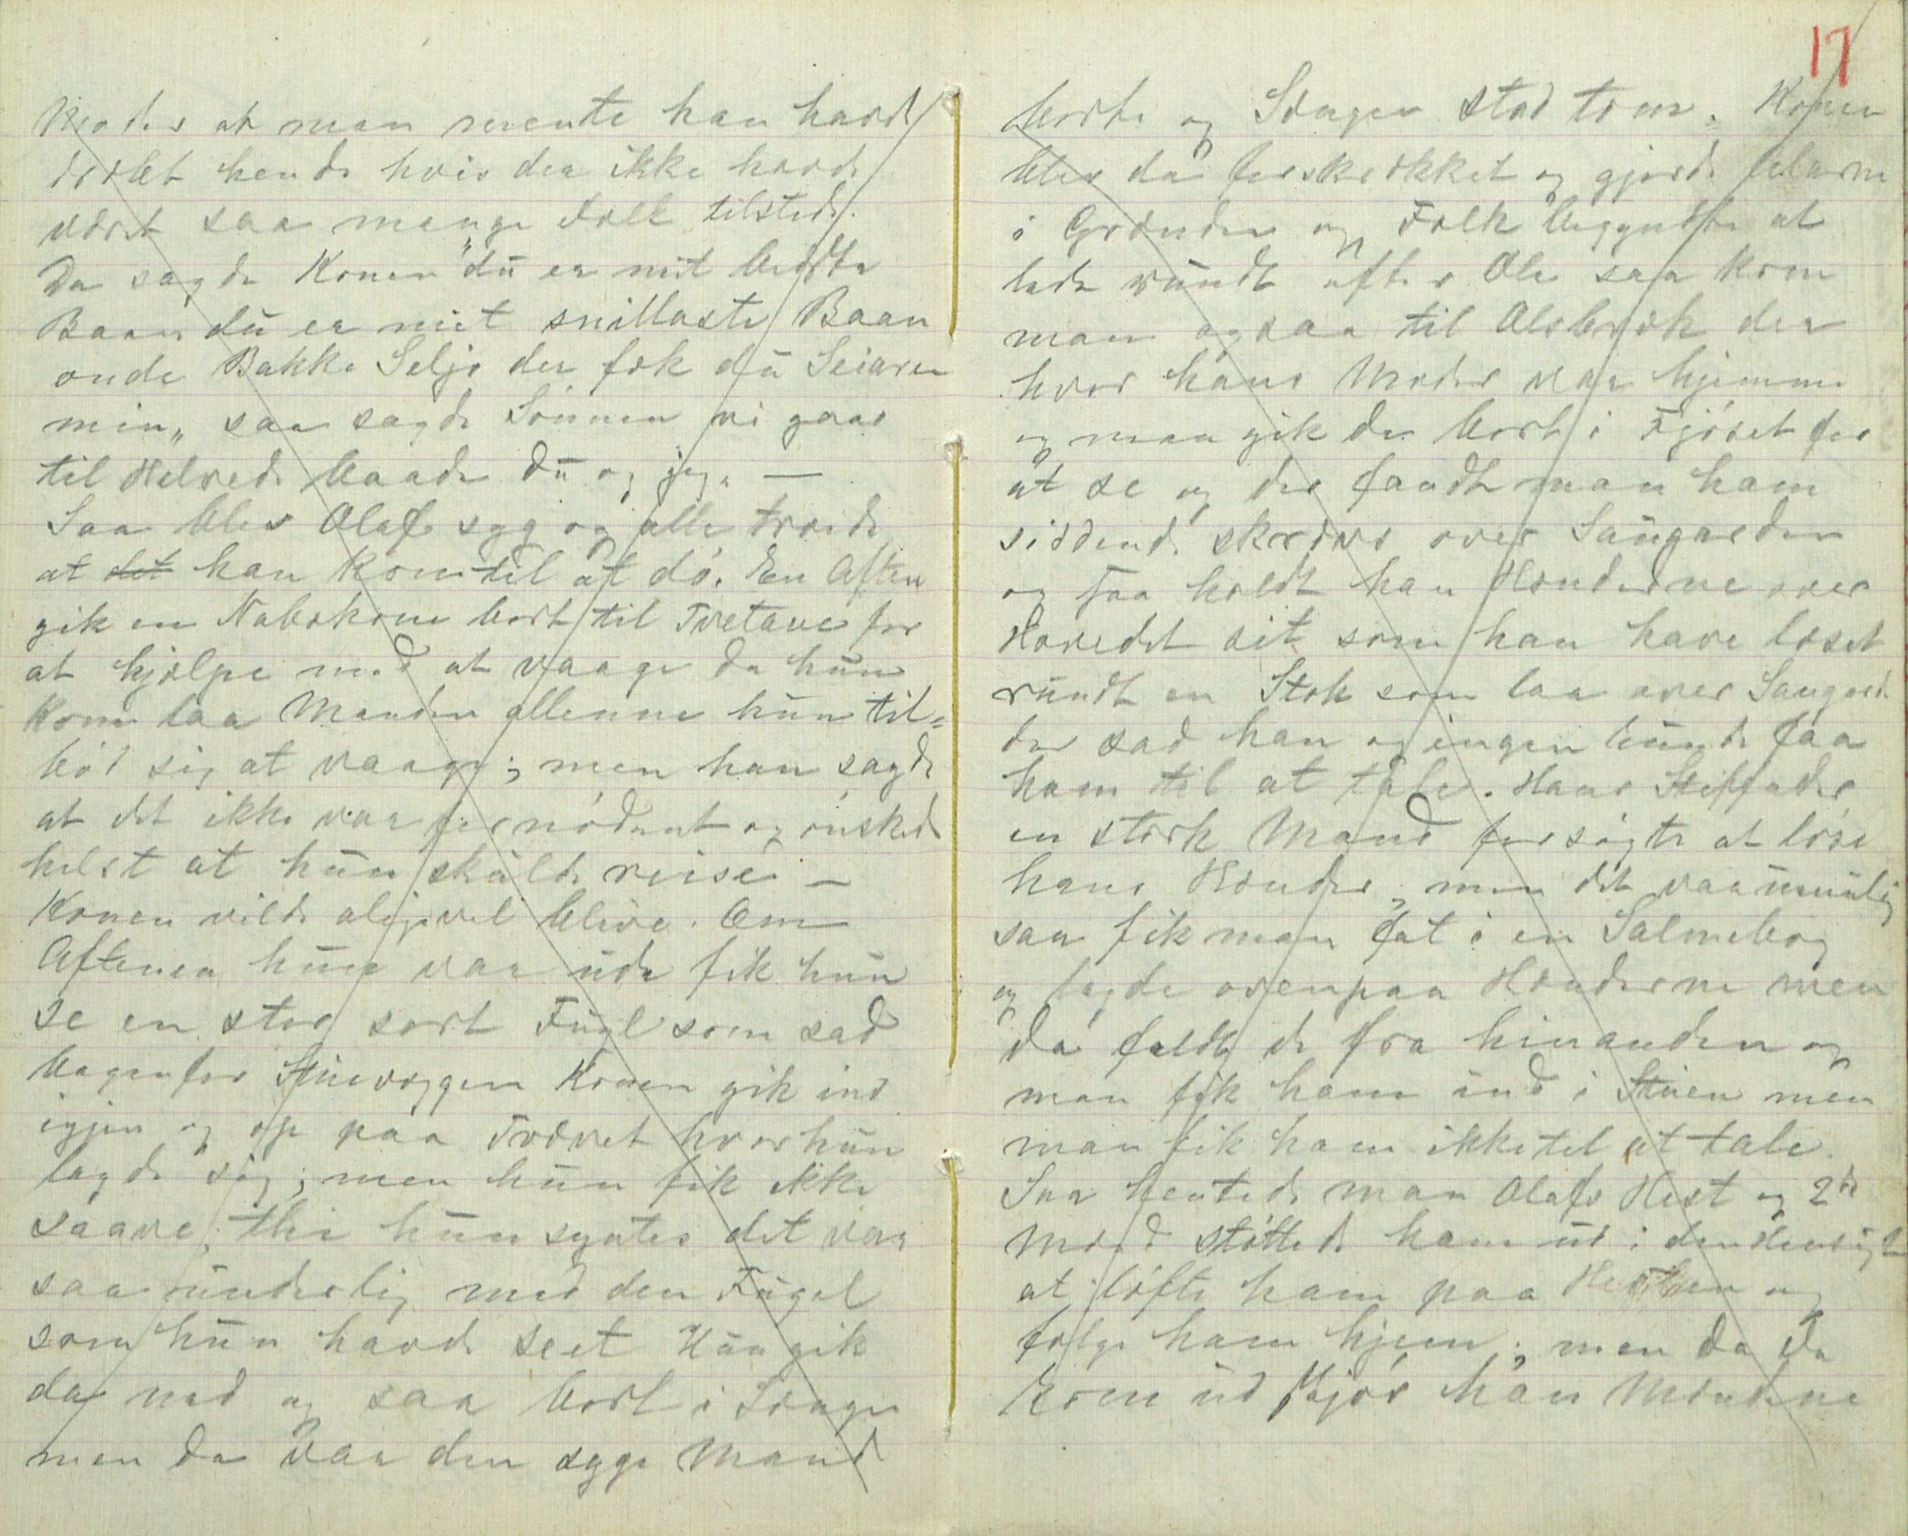 Moder at man mente han havde
dræbt hende hvis der ikke havde
været saa mange Folk tilstede.
Da sagde Konen "du er mit bedste
Baan du er mit snillaste Baan
onde Bakke Seljo der fek du Seiaren
min„ saa sagde Sønnen vi gaar
til Helvede baade du og jeg. —
Saa blev Olaf syg og alle troede
at det han kom til at dø. En Aften
gik en Nabokone bort til Tvetane for
at hjælpe med at vaage da hun
kom laa Manden allenne hun til=
bød sig at vaage; men han sagde
at det ikke var fornødent og ønskede
helst at hun skulde reise —
Konen vilde aligevel blive. Om
Aftenen hun var ude fik hun
se en stor sort Fugl som sad
bagenfor Stuevæggen Konen gik ind
igjen og op paa Tværet hvor hun
lagde sig; men hun fik ikke
saave, thi hun syntes det var
saa underlig med den Fugel
som hun havde seet Hun gik
da ned og saa bort i Sængen
men da var den syge Mand
17
borte og Sængen stod tom. Konen
blev da forskrækket og gjorde Alarm
i Grænden og Folk begyndte at
lede rundt efter Ole saa kom
man ogsaa til Alsbrek der
hvor hans Moder var hjemme
og man gik da bort i Fjøset for
at se og der fandt man ham
siddende skrævs over Saugarden
og saa holdt han Hænderne over
Hovedet sit som han have læset
rundt en Stok som laa over Saugard
der sad han og ingen kunde faa
ham til at tale. Hans Stiffader
en stærk Mand forsøgte at løse
hans Hænder, men det var umulig
saa fik man fat i en Salmebog
og lagde ovenpaa Hænderne men
da faldt de fra hinanden og
man fik ham ind i Stuen men
man fik ham ikke til at tale.
Saa hentede man Olafs Hest og 2de
Mænd støttede ham ud i den Hensigt
at løfte ham paa Hesten og
følge ham hjem; men da de
kom ud kjør han Mændene